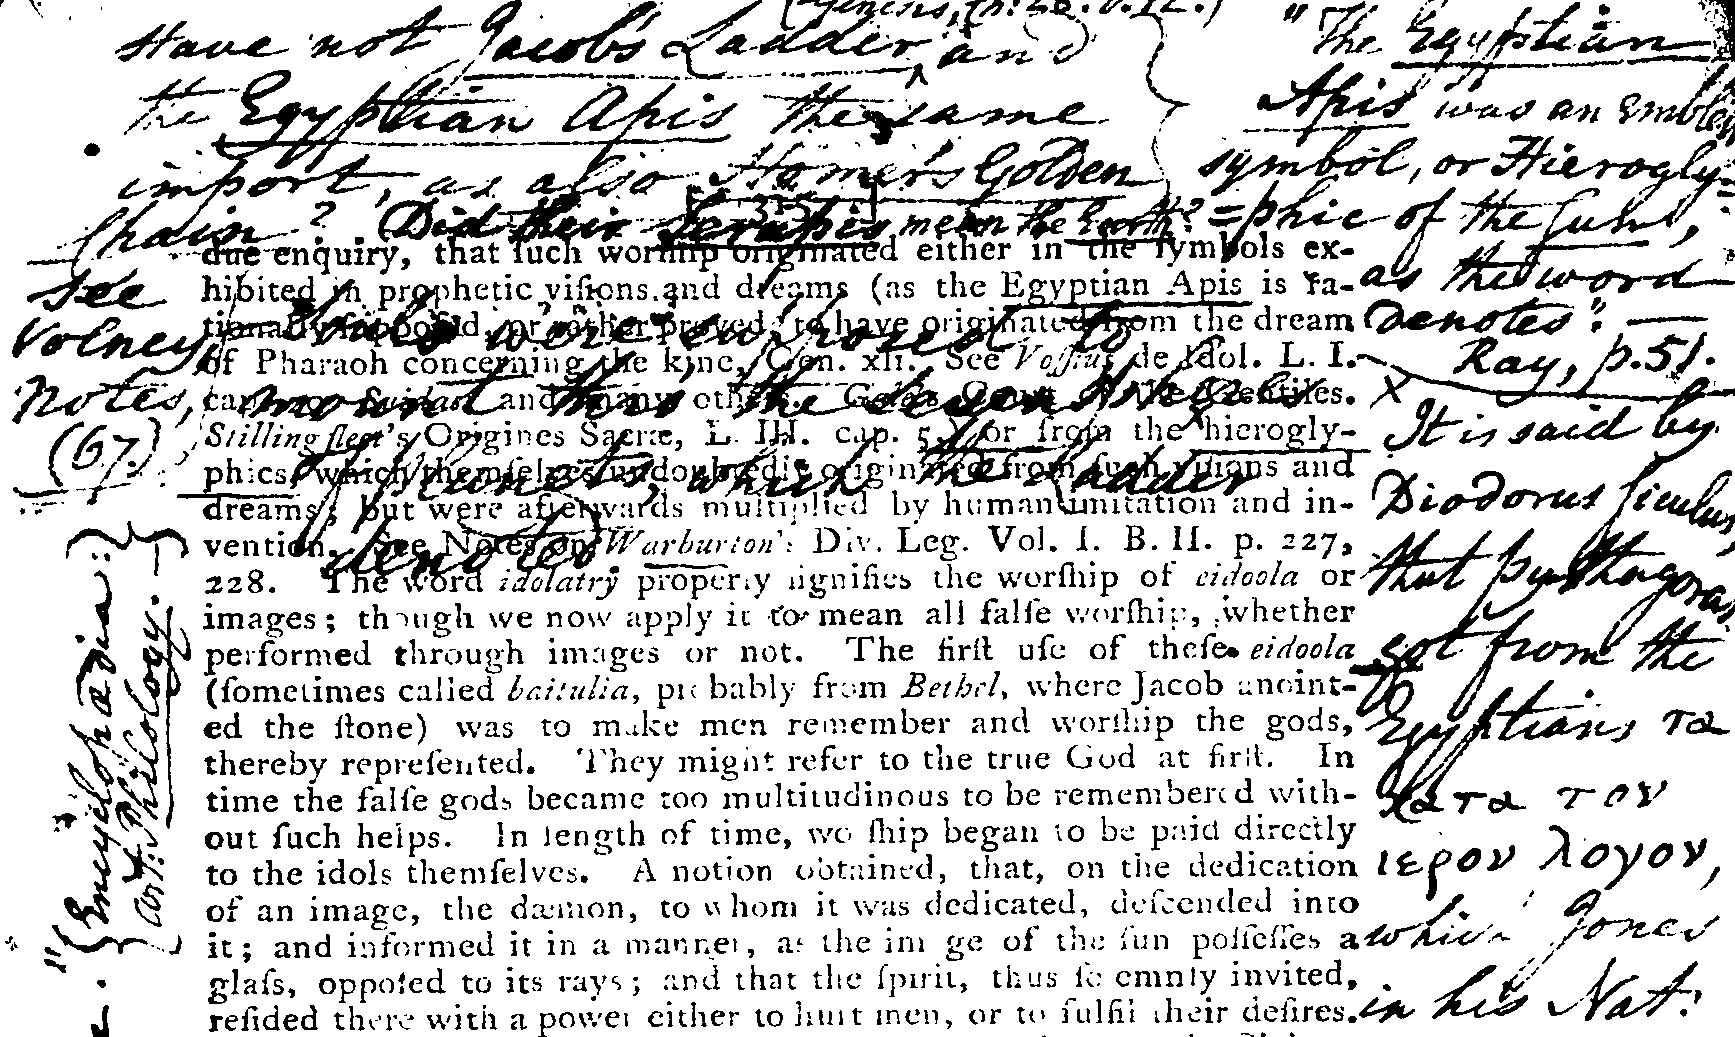 (Genesis, Ch: 28. v. 12.)
Have not Jacob's Ladder, and
the Egyptian Apis the same
import, as also Homer's Golden
Chain? Did their Serapis mean the Earth?
See
Volney's
Notes,
(67.)
Souls were supposed to
mount thro' the seven
planets, which the Ladder
denoted.
"The Egyptian
Apis was an Emblem
symbol, or Hierogly=
=phic of the Sun,
as the word
denotes".
Ray, p. 51.
X
It is said by
Diodorus Siculus,
that Pythagoras,
got from the
Egyptians τα
κατα τον
ιερον λογον,
which Jones
in his Nat:
due enquiry, that ſuch worſhip originated either in the ſymbols ex-
hibited in prophetic viſions and dreams (as the Egyptian Apis is ra-
tionally ſuppoſed, or rather proved, to have originated from the dream
of Pharaoh concerning the kine, Gen. xli. See Voſſius de Idol. L. I.
cap. Suidas and many others. Gale's Court of the Gentiles.
Stillingfleet's Origines Sacræ, L. III. cap. 5.) or from the hierogly-
phics, which themſelves undoubtedly originated from ſuch viſions and
dreams, but were afterwards multiplied by human imitation and in-
vention. See Notes on Warburton's Div. Leg. Vol. I. B. II. p. 227,
228. The word idolatry properly ſignifies the worſhip of eidoola or
images; though we now apply it to mean all falſe worſhip, whether
performed through images or not. The firſt uſe of theſe eidoola
(ſometimes called baitulia, probably from Bethel, where Jacob anoint-
ed the ſtone) was to make men remember and worſhip the gods,
thereby repreſented. They might refer to the true God at firſt. In
time the falſe gods became too multitudinous to be remembered with-
out ſuch helps. In length of time, worſhip began to be paid directly
to the idols themſelves. A notion obtained, that, on the dedication
of an image, the dæmon, to whom it was dedicated, deſcended into
it; and informed it in a manner, as the image of the ſun poſſeſſes a
glaſs, oppoſed to its rays; and that the ſpirit, thus ſolemnly invited,
reſided there with a power either to hurt men, or to fulfil their deſires.
"{Encyclopædia:}
{Art: Philology.}